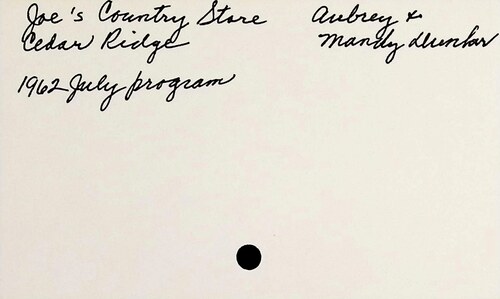 Joe's Country Store
Cedar Ridge
Aubrey &
Mandy Dunbar
1962 July program